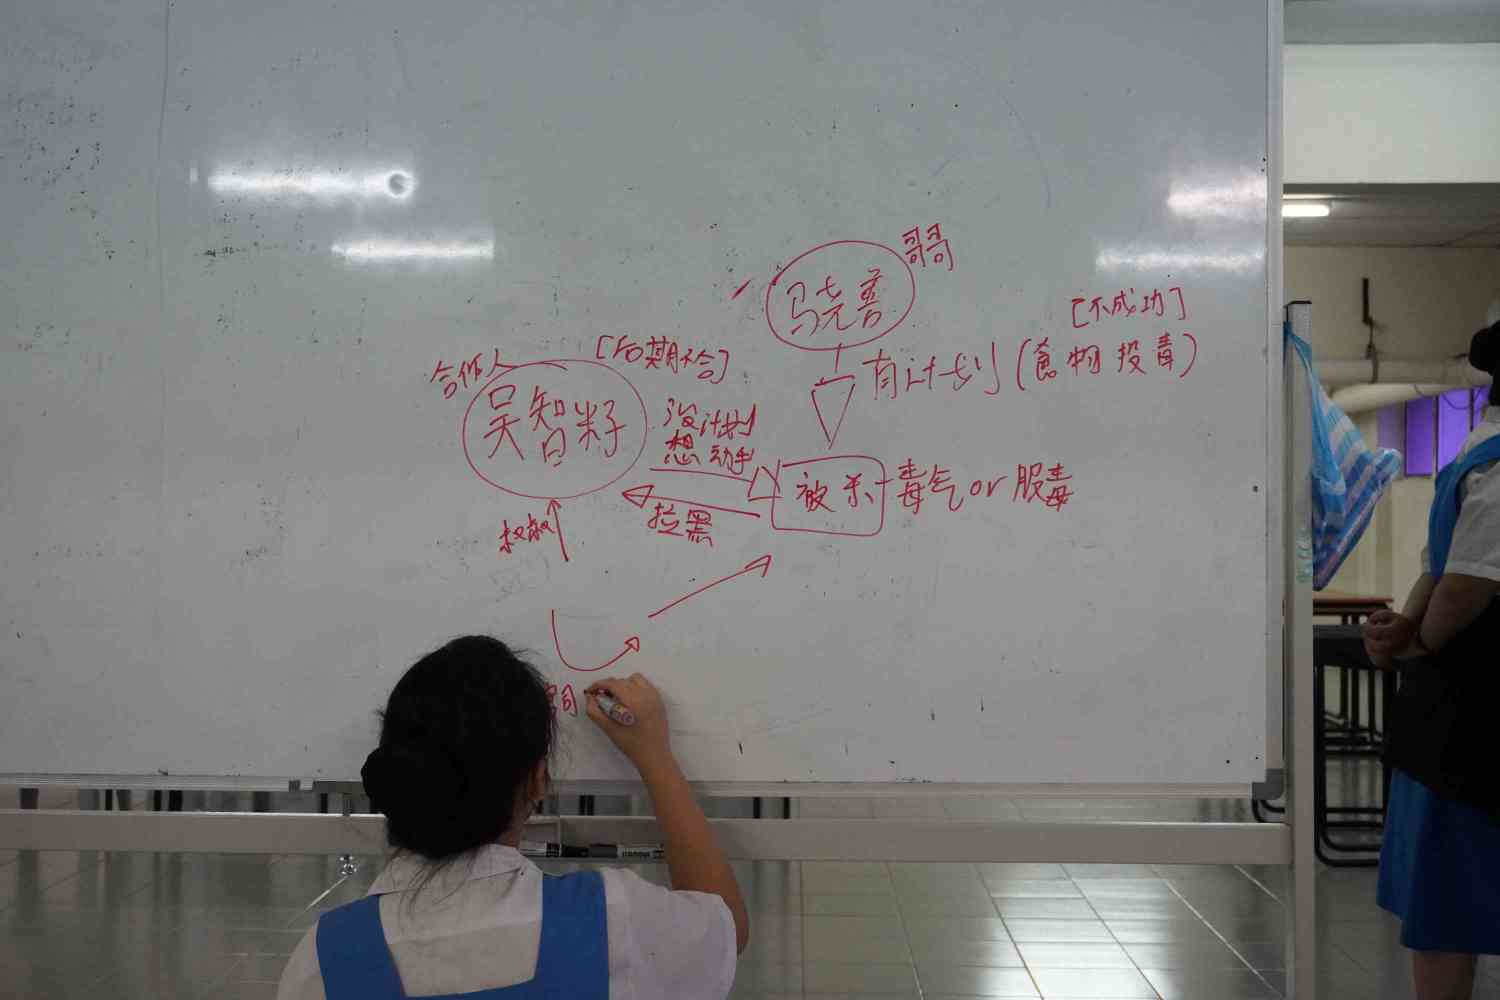 哥哥
骁善
[不成功]
有计划(食物投毒)
合作人
[后期不合]
吴智籽
没计划
想动手
被杀-毒气or服毒
拉黑
叔叔